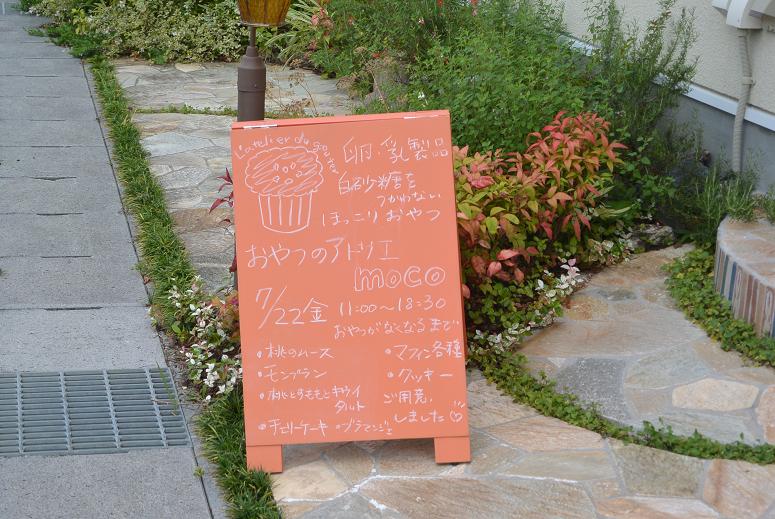 L'atelier du goûter
卵・乳製品
白砂糖を
つかわない
ほっこりおやつ
おやつのアトリエ
moco
7/22金 11:00〜18:30
おやつがなくなるまで
・桃のムース
・モンブラン
・桃とすももとキウイ
タルト
・チェリーケーキ ・ブラマンジェ
・マフィン各種
・クッキー
ご用意
しました♡